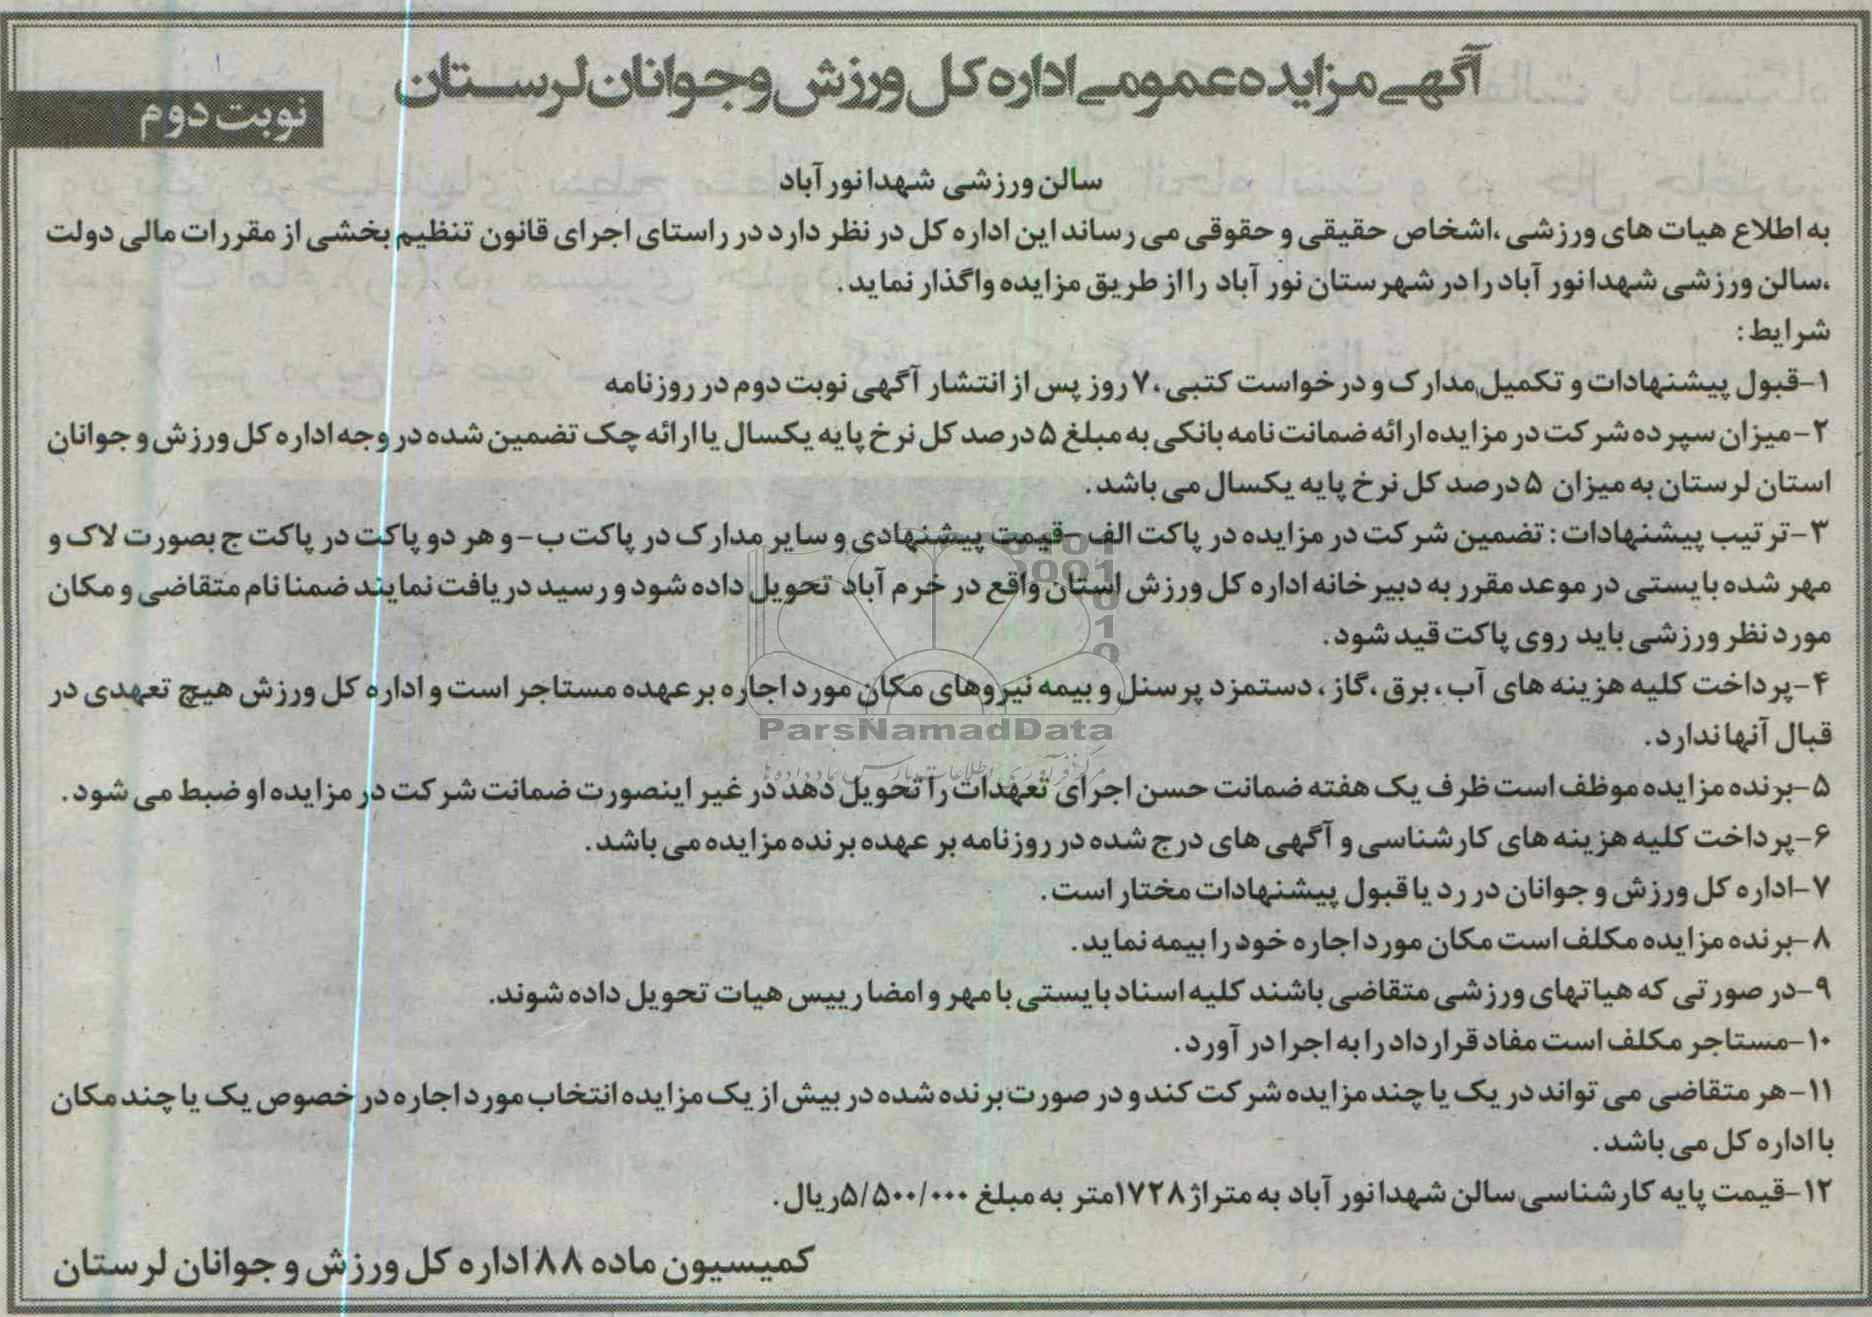 آگهی مزایده عمومی اداره کل ورزش و جوانان لرستان
نوبت دوم
سالن ورزشی شهدا نورآباد
به اطلاع هیات های ورزشی ،اشخاص حقیقی و حقوقی می رساند این اداره کل در نظر دارد در راستای اجرای قانون تنظیم بخشی از مقررات مالی دولت
،سالن ورزشی شهدا نور آباد را در شهرستان نور آباد را از طریق مزایده واگذار نماید.
شرایط:
۱-قبول پیشنهادات و تکمیل مدارک و درخواست کتبی ،۷ روز پس از انتشار آگهی نوبت دوم در روزنامه
۲-میزان سپرده شرکت در مزایده ارائه ضمانت نامه بانکی به مبلغ ۵ درصد کل نرخ پایه یکسال یا ارائه چک تضمین شده در وجه اداره کل ورزش و جوانان
استان لرستان به میزان ۵ درصد کل نرخ پایه یکسال می باشد.
۳-ترتیب پیشنهادات: تضمین شرکت در مزایده در پاکت الف -قیمت پیشنهادی و سایر مدارک در پاکت ب- و هر دو پاکت در پاکت ج بصورت لاک و
مهر شده بایستی در موعد مقرر به دبیرخانه اداره کل ورزش استان واقع در خرم آباد تحویل داده شود و رسید دریافت نمایند ضمنا نام متقاضی و مکان
مورد نظر ورزشی باید روی پاکت قید شود.
۴-پرداخت کلیه هزینه های آب، برق ،گاز، دستمزد پرسنل و بیمه نیروهای مکان مورد اجاره برعهده مستاجر است و اداره کل ورزش هیچ تعهدی در
قبال آنها ندارد.
ParsNamadData
مرکز فرآوری اطلاعات پارس نماد داده ها
۵-برنده مزایده موظف است ظرف یک هفته ضمانت حسن اجرای تعهدات را تحویل دهد در غیر اینصورت ضمانت شرکت در مزایده او ضبط می شود.
۶-پرداخت کلیه هزینه های کارشناسی و آگهی های درج شده در روزنامه بر عهده برنده مزایده می باشد.
۷-اداره کل ورزش و جوانان در رد یا قبول پیشنهادات مختار است.
۸-برنده مزایده مکلف است مکان مورد اجاره خود را بیمه نماید.
۹-در صورتی که هیاتهای ورزشی متقاضی باشند کلیه اسناد بایستی با مهر و امضا رییس هیات تحویل داده شوند.
۱۰-مستاجر مکلف است مفاد قرارداد را به اجرا در آورد.
۱۱-هر متقاضی می تواند در یک یا چند مزایده شرکت کند و در صورت برنده شده در بیش از یک مزایده انتخاب مورد اجاره در خصوص یک یا چند مکان
با اداره کل می باشد.
۱۲-قیمت پایه کارشناسی سالن شهدا نور آباد به متراژ ۱۷۲۸متر به مبلغ ۵/۵۰۰/۰۰۰ریال.
کمیسیون ماده ۸۸ اداره کل ورزش و جوانان لرستان